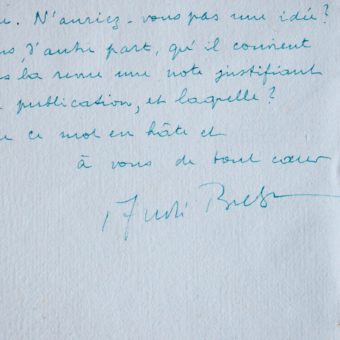 . N'auriez-vous pas une idée?
, d'autre part, qu'il convient
la revue une note justifiant
publication, et laquelle?
ce mot en hâte et
à vous de tout cœur
André Breton